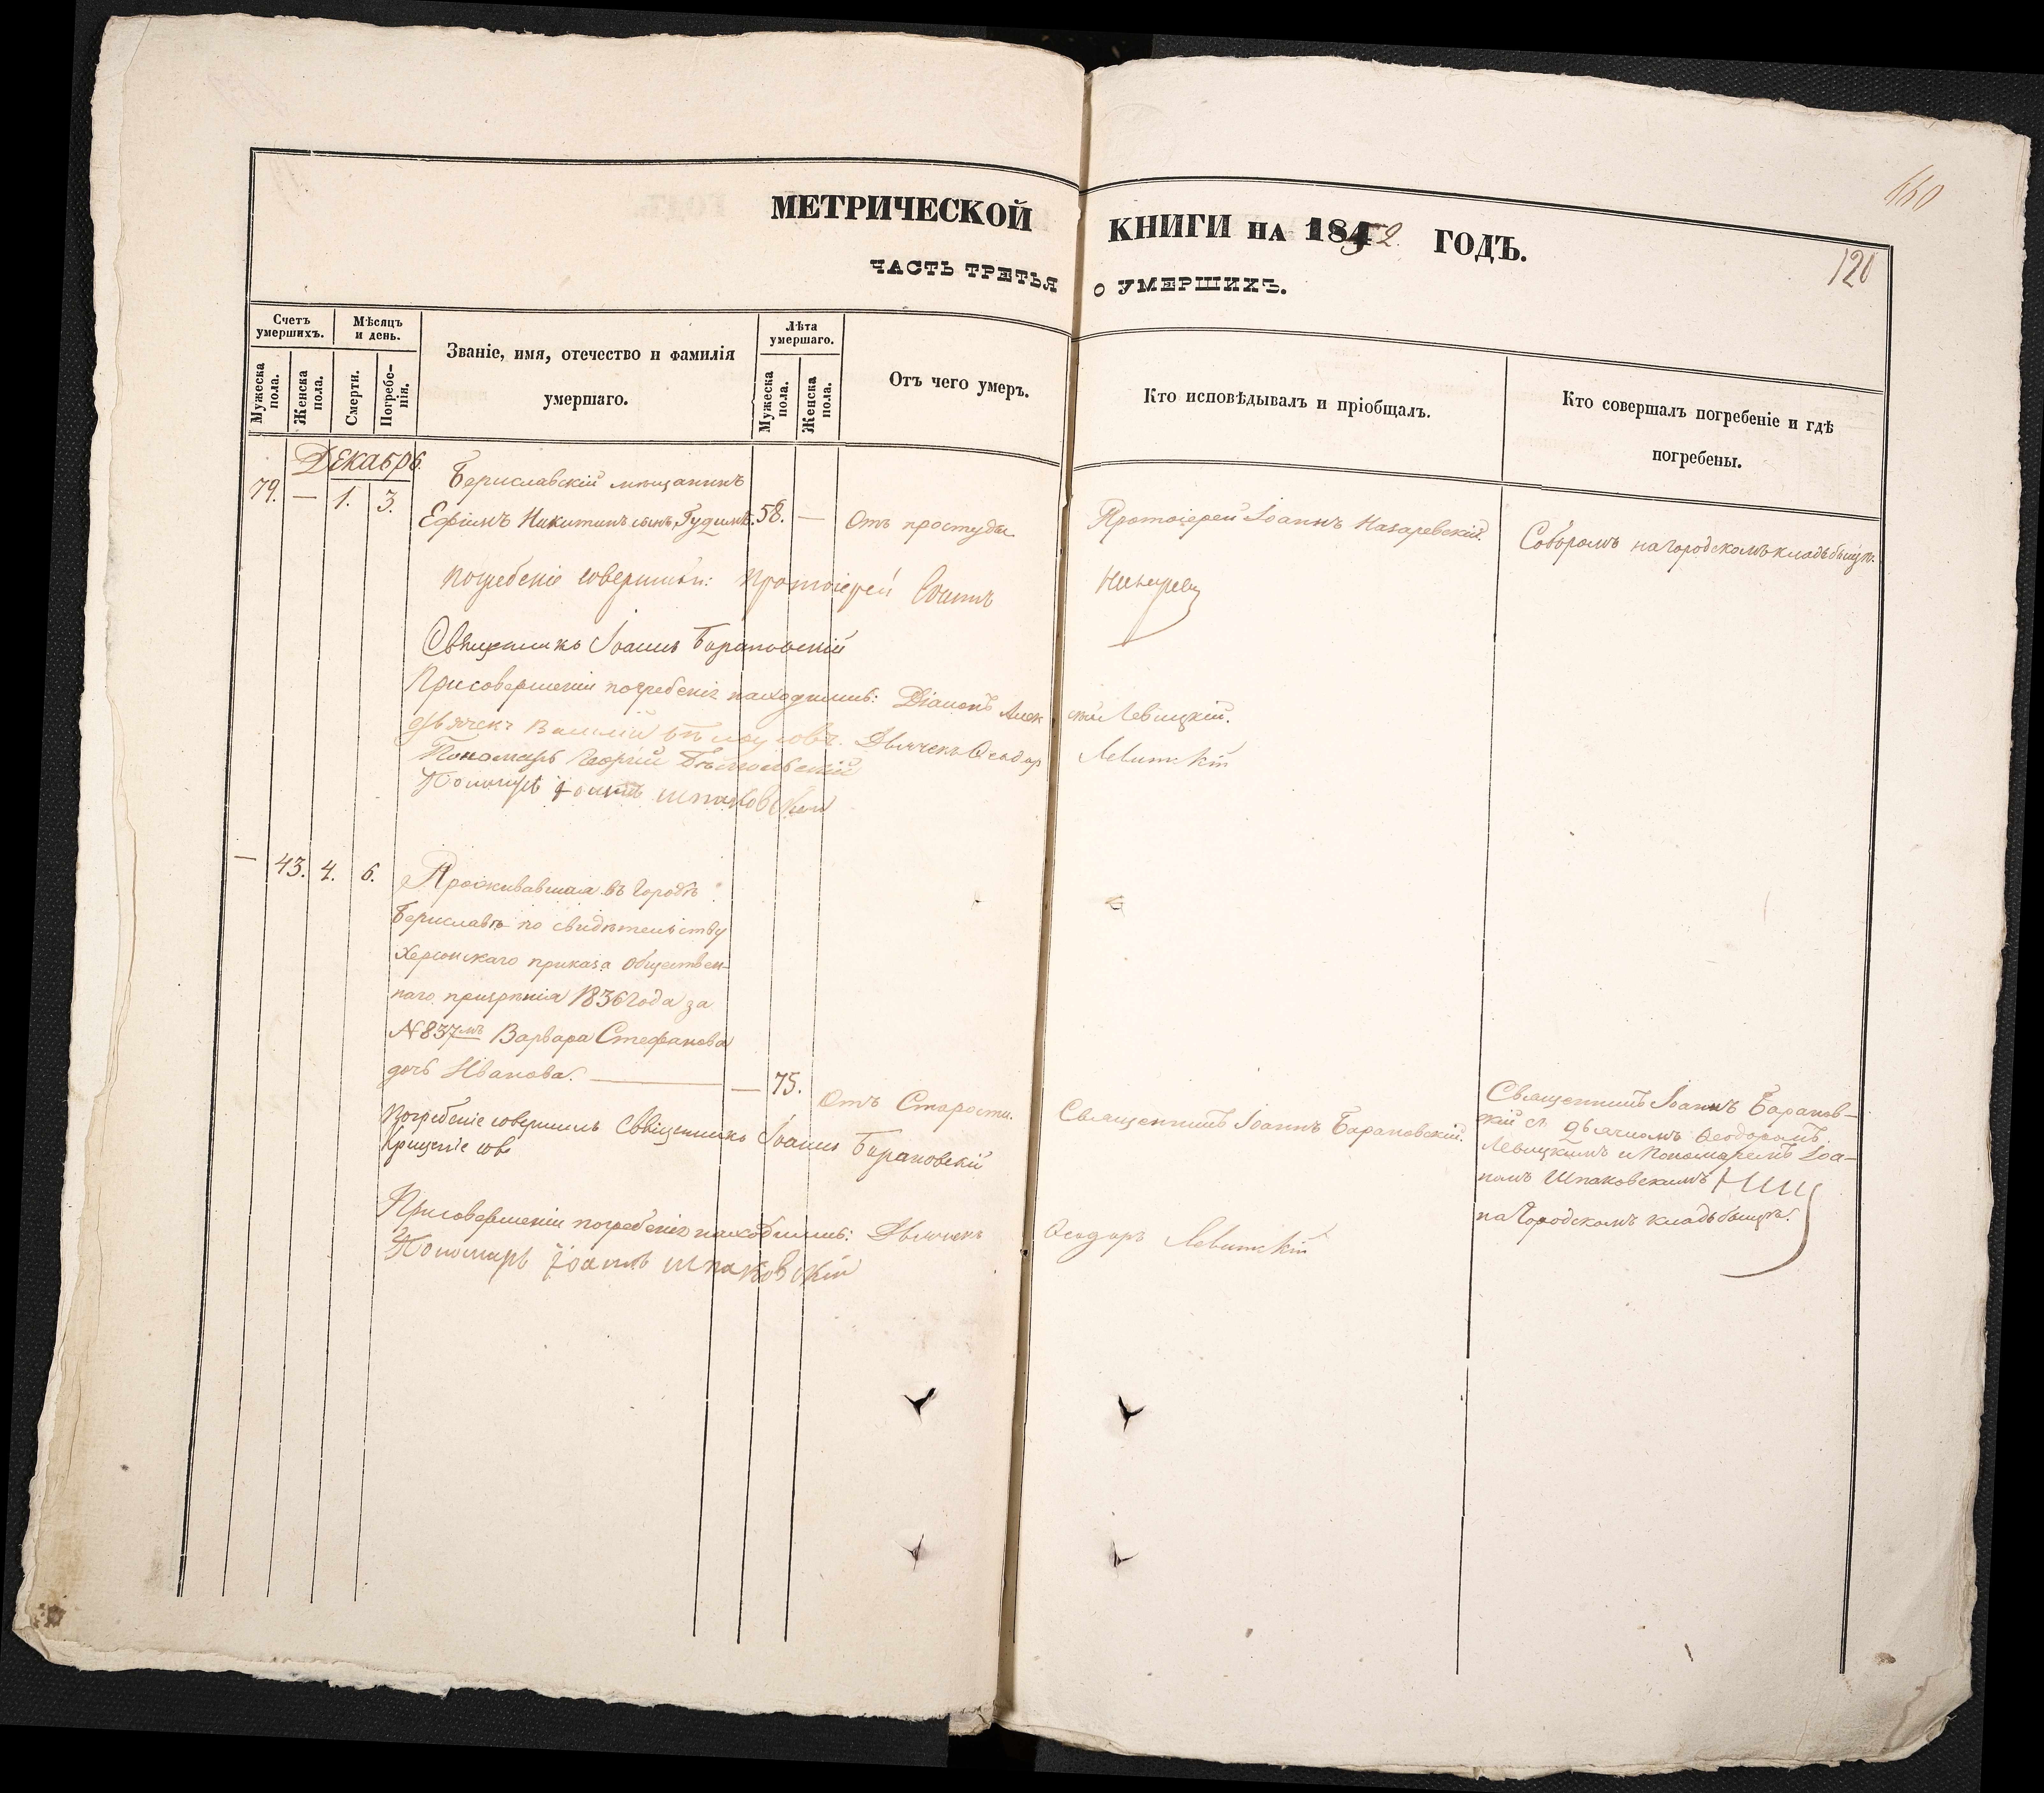 660
120
МЕТРИЧЕСКОЙ КНИГИ НА 1852 ГОДЪ.
ЧАСТЬ ТРЕТЬЯ О УМЕРШИХЪ.
Счетъ умершихъ.
Мужеска пола.
Женска пола.
Мѣсяцъ и день.
Смерти.
Погребенія.
Званіе, имя, отечество и фамилія
умершаго.
Лѣта умершаго.
Мужеска пола.
Женска пола.
Отъ чего умеръ.
Кто исповѣдывалъ и пріобщалъ.
Кто совершалъ погребеніе и гдѣ
погребены.
Декабрь
79. — 1. 3.
Бериславскій мѣщанинъ
Ефимъ Никитинъ сынъ 58. — Отъ простуды. Протоіерей Іоаннъ Назаревскій. Соборомъ на Городскомъ кладбищѣ.
Погребеніе совершали: Протоіерей Іоаннъ
Священникъ Іоаннъ Барановскій
При совершеніи погребенія находились: Діаконъ Алексѣй Левицкій.
Дьячекъ Василій Дьячекъ Ѳеодоръ Левитскій
Пономарь Георгій
Пономарь Іоаннъ Шпаковскій
— 43. 4. 6.
Проживавшая въ Городѣ
Бериславѣ по свидѣтельству
Херсонскаго приказа Обществен-
наго призрѣнія 1836 года за
№ 837мъ Варвара Стефанова
дочь Иванова. — 75. Отъ Старости. Священникъ Іоаннъ Барановскій.
Священникъ Іоаннъ Баранов-
скій съ дьячкомъ Ѳеодоромъ
Левицкимъ и Пономаремъ Іоа-
номъ Шпаковскимъ
на Городскомъ кладбищѣ.
Погребеніе совершилъ Священникъ Іоаннъ Барановскій
Крещеніе сов
При совершеніи погребенія находились: Дьячекъ Ѳеодоръ Левитскій
Пономарь Іоаннъ Шпаковскій